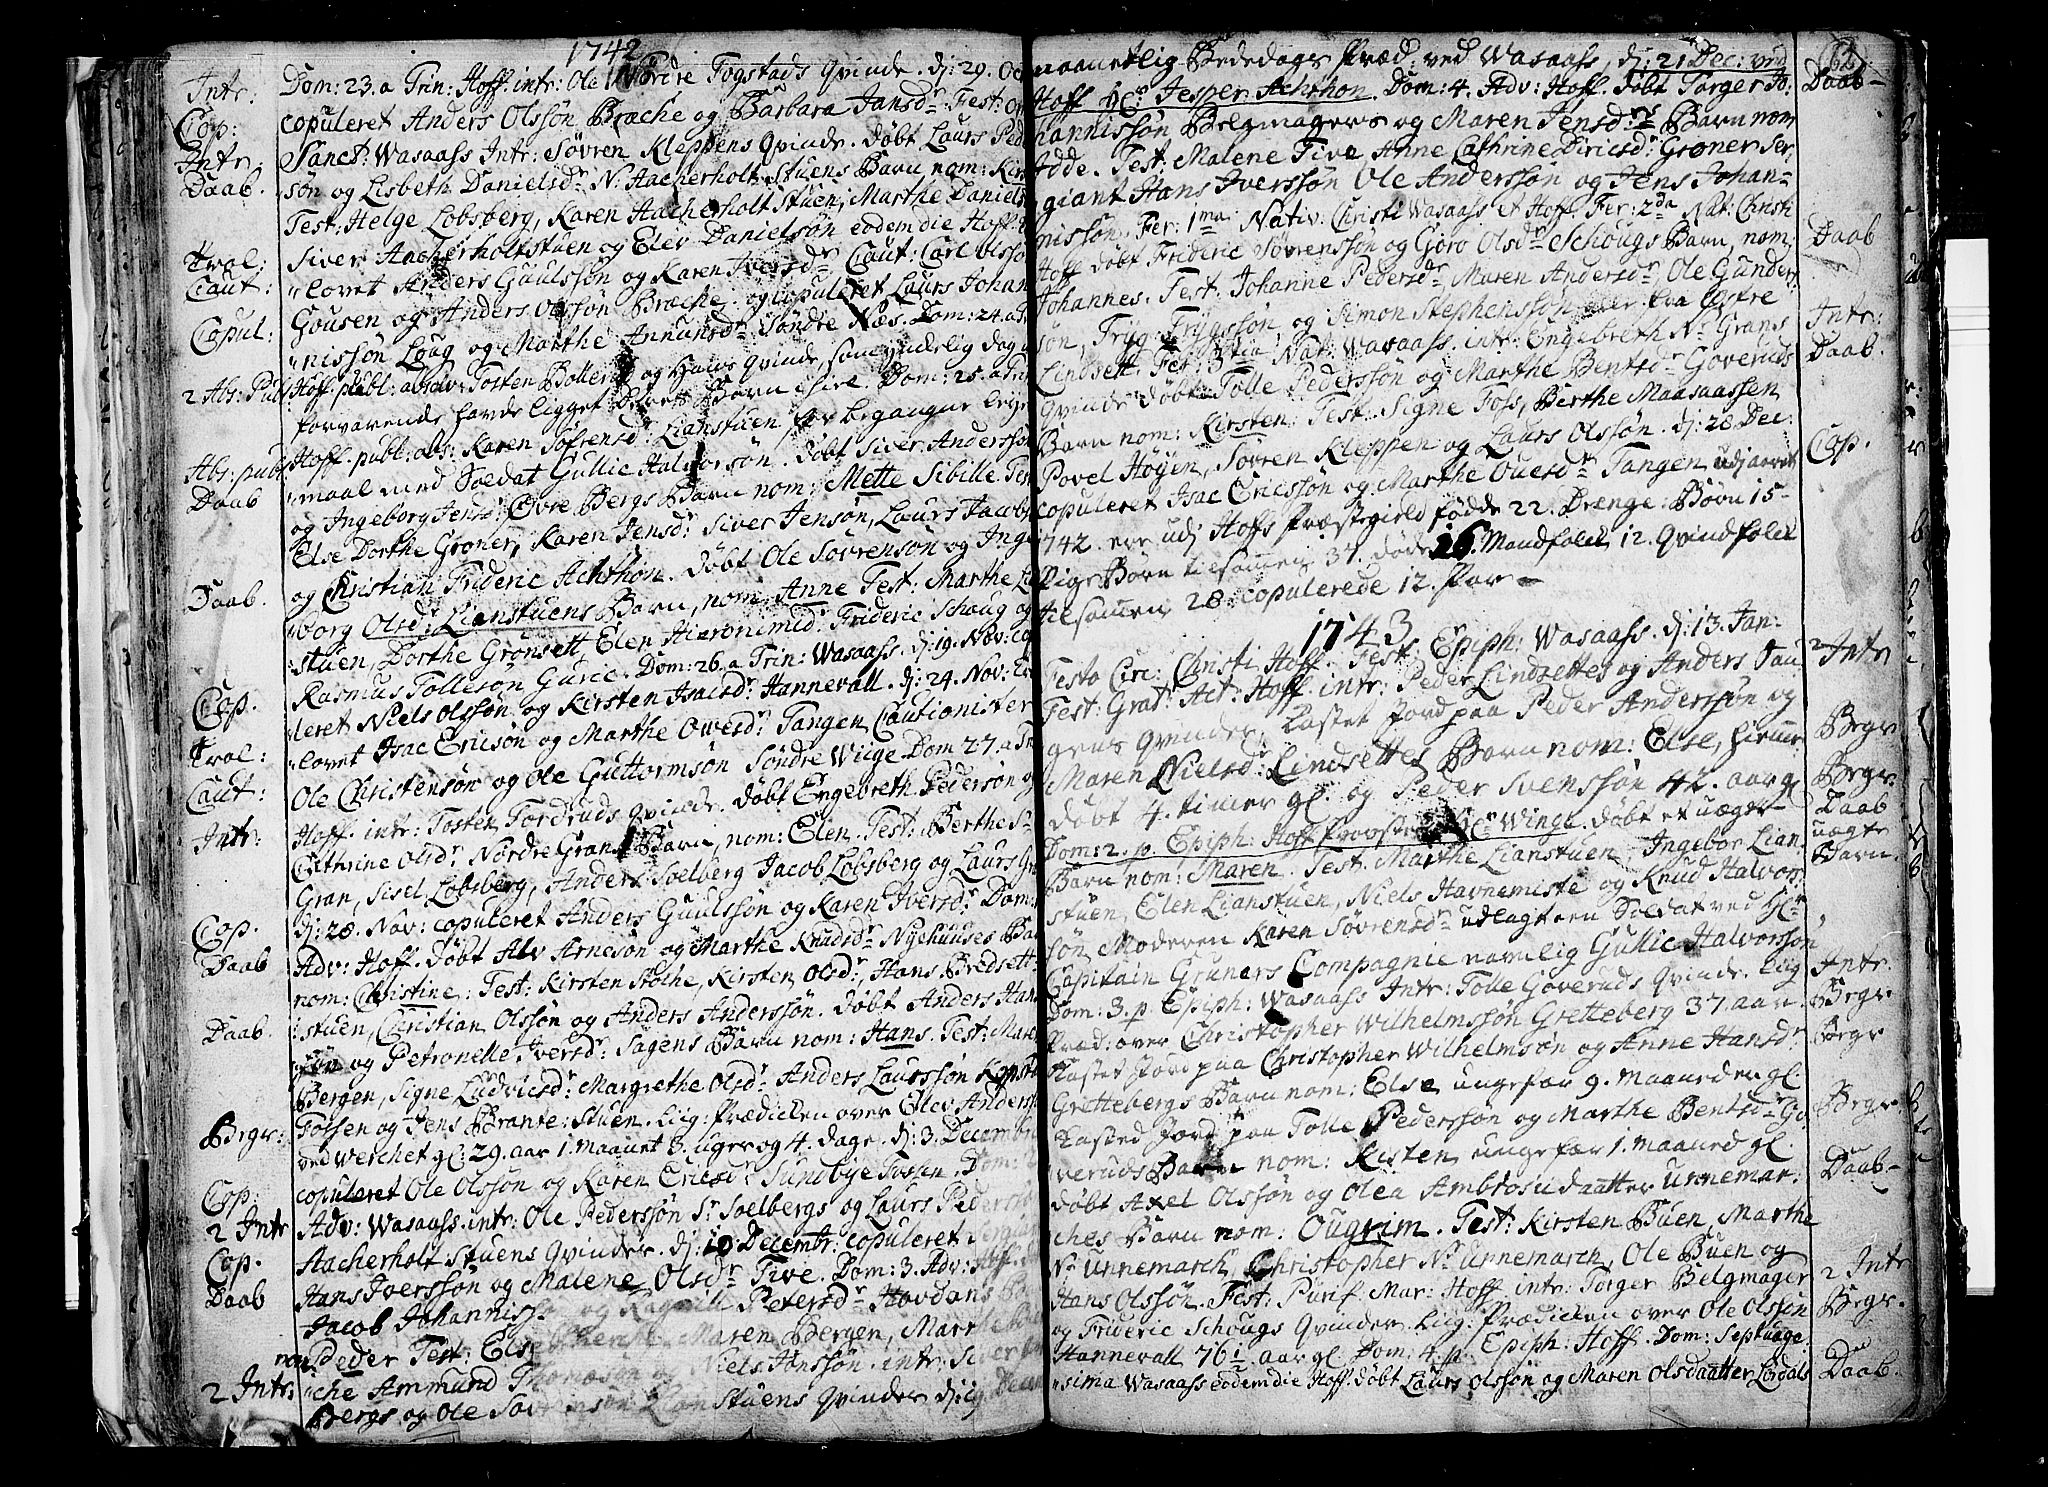 1742
Intr: Dom: 23. a Trin: Hoff. intr: Ole Nordre Fogstads Qvinde. dj: 29. Oct
Cop: copuleret Anders Olssön Brache og Barbara Jansdr. Fest: Om
Intr: Sanct: Wasaass Intr: Sövren Kleppens Qvinde. döbt Laurs Peder
Daab. sön og Lisbeth Danielsdr N. Aacherholt Stuens Barn nom: Kirs
Test: Helge Lobsberg, Karen Aacherholt Stuen, Marthe Daniels
Siver Aacherholtstuen og Elev Danielsön eodem die Hoff.
Trol: lovet Anders Gaulssön og Karen Iversdr Caut: Carl Olssön
Caut: Gousen og Anders Olssön Brache. og copuleret Laurs Johan
Copul: nissön Loug og Marthe Amundsdr Söndre Næs. Dom: 24. a Tr
2 Abs: Publ Hoff. publ: absolv: Tosten Bollerud og Hans Qvinde, som
forvarende havde ligget deres Barn ihiel. Dom: 25. a Trin
Abs: publ Hoff. publ: abs: Karen Söfrensdr. Lianstuen for begangne leyer
Daab maal med Soldat Gullic Halvorsön. döbt Siver Anderssön
og Ingeborg Jensdr. Övre Bergs Barn nom: Mette Sibille. Test
Else Dorthe Gröner, Karen Jensdr. Siver Jensön, Laurs Jacobs
Daab. og Christian Frideric Achthon. döbt Ole Sövrensön og Inge
borg Olsdr. Lianstuens Barn, nom: Anne Test: Marthe Lian
stuen, Dorthe Grönsett, Elen Hieronimid: Frideric Schoug og
Rasmus Tollesön Gurie. Dom: 26. a Trin: Wasaass. dj: 19. Nov: copu
Cop. leret Niels Olssön og Kirsten Amisdr Hannevall. dj: 24. Nov: tro
Trol: lovet Isac Ericsön og Marthe Owesdr. Tangen Cautionister
Caut: Ole Christensön og Ole Guttormsön Söndre Wiige Dom 27. a Trin
Intr: Hoff. intr: Tosten Fordruds Qvinde. döbt Engebreth Pedersön og
Cathrine Olsdr Nordre Grans Barn, nom: Elen. Test: Berthe S
Gran, Sisel Lobsberg, Anders Soelberg Jacob Lobsberg og Laurs Gr
Cop. dj: 28. Nov: copuleret Anders Guulssön og Karen Iversdr Dom:
Daab Adv: Hoff. döbt Alv Arnesön og Marthe Knudsdr Nyehuuses Barn
nom: Christine: Test: Kirsten Stothe, Kirsten Olsdr, Hans Bredsett
Daab. stuen, Christian Olssön og Anders Anderssön. döbt Anders Hans
sön og Petronelle Iversdr. Sagens Barn nom: Hans. Test: Maren
Bergen, Signe Ludvicsdr: Margrethe Olsdr. Anders Laurssön
Fossen og Jens Brante: Stuen. Liig: Prædicken over Elev Anders
Begr: ved Werchet gl: 29. aar 1. maanet 3. uger og 4. dage. dj: 3. Decembr
Cop: copuleret Ole Olssön og Karen Ericsdr Sundbye Fossen. Dom: 2
2 Intr Adv: Wasaass. intr: Ole Pederssön Sr Soelbergs og Laurs Peders
Cop. Aacherholt Stuens Qvinder. dj: 10 Decembr: copuleret Sergiant
Daab Hans Iverssön og Malene Olsdr Five. Dom: 3. Adv: Hoff. döbt
Jacob Johanniss og Ragnild Petersdr Hovdans Barn
nom Peder Test: Else Maren Bergen, Marthe
2 Intr: che Ammund Thomæsön og Niels Hanssön. intr: Siver
Bergs og Ole Sövrensön Lian Stuens Qvinder dj: 19 Decem
62
maanetlig Bededags Præd: ved Wasaass, dj: 21. Dec: ved
Hoff Hr. Jesper Achthon. Dom: 4. Adv: Hoff. döbt Torger Jo: Daab
hannissön Belgmagers og Maren Jensdrs Barn nom
Adde. Test: Malene Five, Anne Cathrine Diricsdr: Gröner Ser,
giant Hans Iverssön Ole Anderssön og Jens Johan-
nissön. Fer: 1ma Nativ: Christi Wasaass et Hoff. Fer: 2da Nat: Christi
Hoff döbt Frideric Sövrenssön og Göro Olsdr Schougs Barn, nom: Daab
Johannes. Test: Johanne Pedersdr Maren Andersdr Ole Gunders:
sön, Tryg Trygssön, og Simon Stephenssön
Lindsett. Fer: 3tia Nat: Wasaass. intr: Engebreth Nr Grans Intr:
Qvinde döbt Tolle Pederssön og Marthe Bentsdr Goveruds Daab.
Barn nom: Kirsten Test: Signe Foss, Berthe Maasaassen
Povel Höyen, Sövren Kleppen og Laurs Olssön. dj: 28 Dec:
copuleret Isac Ericssön og Marthe Ovesdr. Tangen. udj aaret Cop.
1742. ere udj Hofs Præstegield födde 22. Drenge: Börn 15-
Pige Börn tilsamen 37. döde 16. Mandfolck 12. Qvindfolck
tilsamen 28. copulerede 12. Par-
1743
Festo Circ: Christi Hoff. Fest: Epiph: Wasaass. dj: 13. Jan-
Fest: Grat: Act: Hoff. intr: Peder Lindsettes og Anders Sau 2 Intr
gens Qvinder. Kastet Jord paa Peder Anderssön og
Maren Nielsdr: Lindsettes Barn nom: Else, hiemme Begr
döbt 4. timer gl. og Peder Svenssön 42. aar gl Begr.
Dom: 2. p. Epiph: Hoff Provsten Hr Winge. döbt et uægte Daab uægte
Barn nom: Maren. Test: Marthe Lianstuen, Ingebor Lian Barn.
stuen, Elen Lianstuen, Niels Havnemiste og Knud Halvors
sön Moderen Karen Sövrensdr udlagt een Soldat ved Hr
Capitain Grunars Compagnie navnlig Gullic Halvorssön
Dom: 3. p. Epiph: Wasaass Intr: Tolle Göveruds Qvinde. Liig Intr:
Præd: over Christopher Wilhelmssön Gretteberg 37. aar. Begr
Kastet Jord paa Christopher Wilhelmsön og Anne Hansdr Begr
Grettebergs Barn nom: Else ungefær 9. maaneder gl.
Kasted Jord paa Tolle Pederssön og Marthe Bentsdr Go Begr
veruds Barn nom: Kisten ungefær 1. maaned gl.
döbt Axel Olssön og Olea Ambrosudaatter Unnemar: Daab-
ches Barn nom: Ougrim. Test: Kirsten Buen, Marthe
Nr Unnemarch, Christopher Nr Unnemarch, Ole Buen og
Hans Olssön. Fest: Purif. Mar: Hoff. intr: Torger Belgmager 2 Intr
og Frideric Schougs Qvinder. Liig: Prædicken over Ole Olssön Begr.
Hannevall 76½ aar gl. Dom: 4. p. Epiph: Hoff. Dom: Septuage:
sima Wasaass eodem die Hoff: döbt Laurs Olssön og Maren Olsdaatter Lördals Daab.